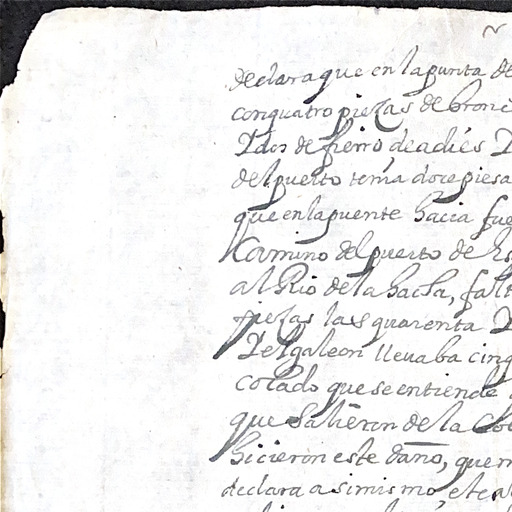 declara que en la punta de
con quatro piezas de bronc
Ydos de fierro de adiés Y
del puerto tenia doce piesa
que en la puente hacia fue
Camino del puerto de
al Rio de la hacha, falt
piezas las quarenta Y
Yel galeon llevaba cinq
colado que se entiende
que Salieron de la
hicieron este daño, quem
declara asimismo, este